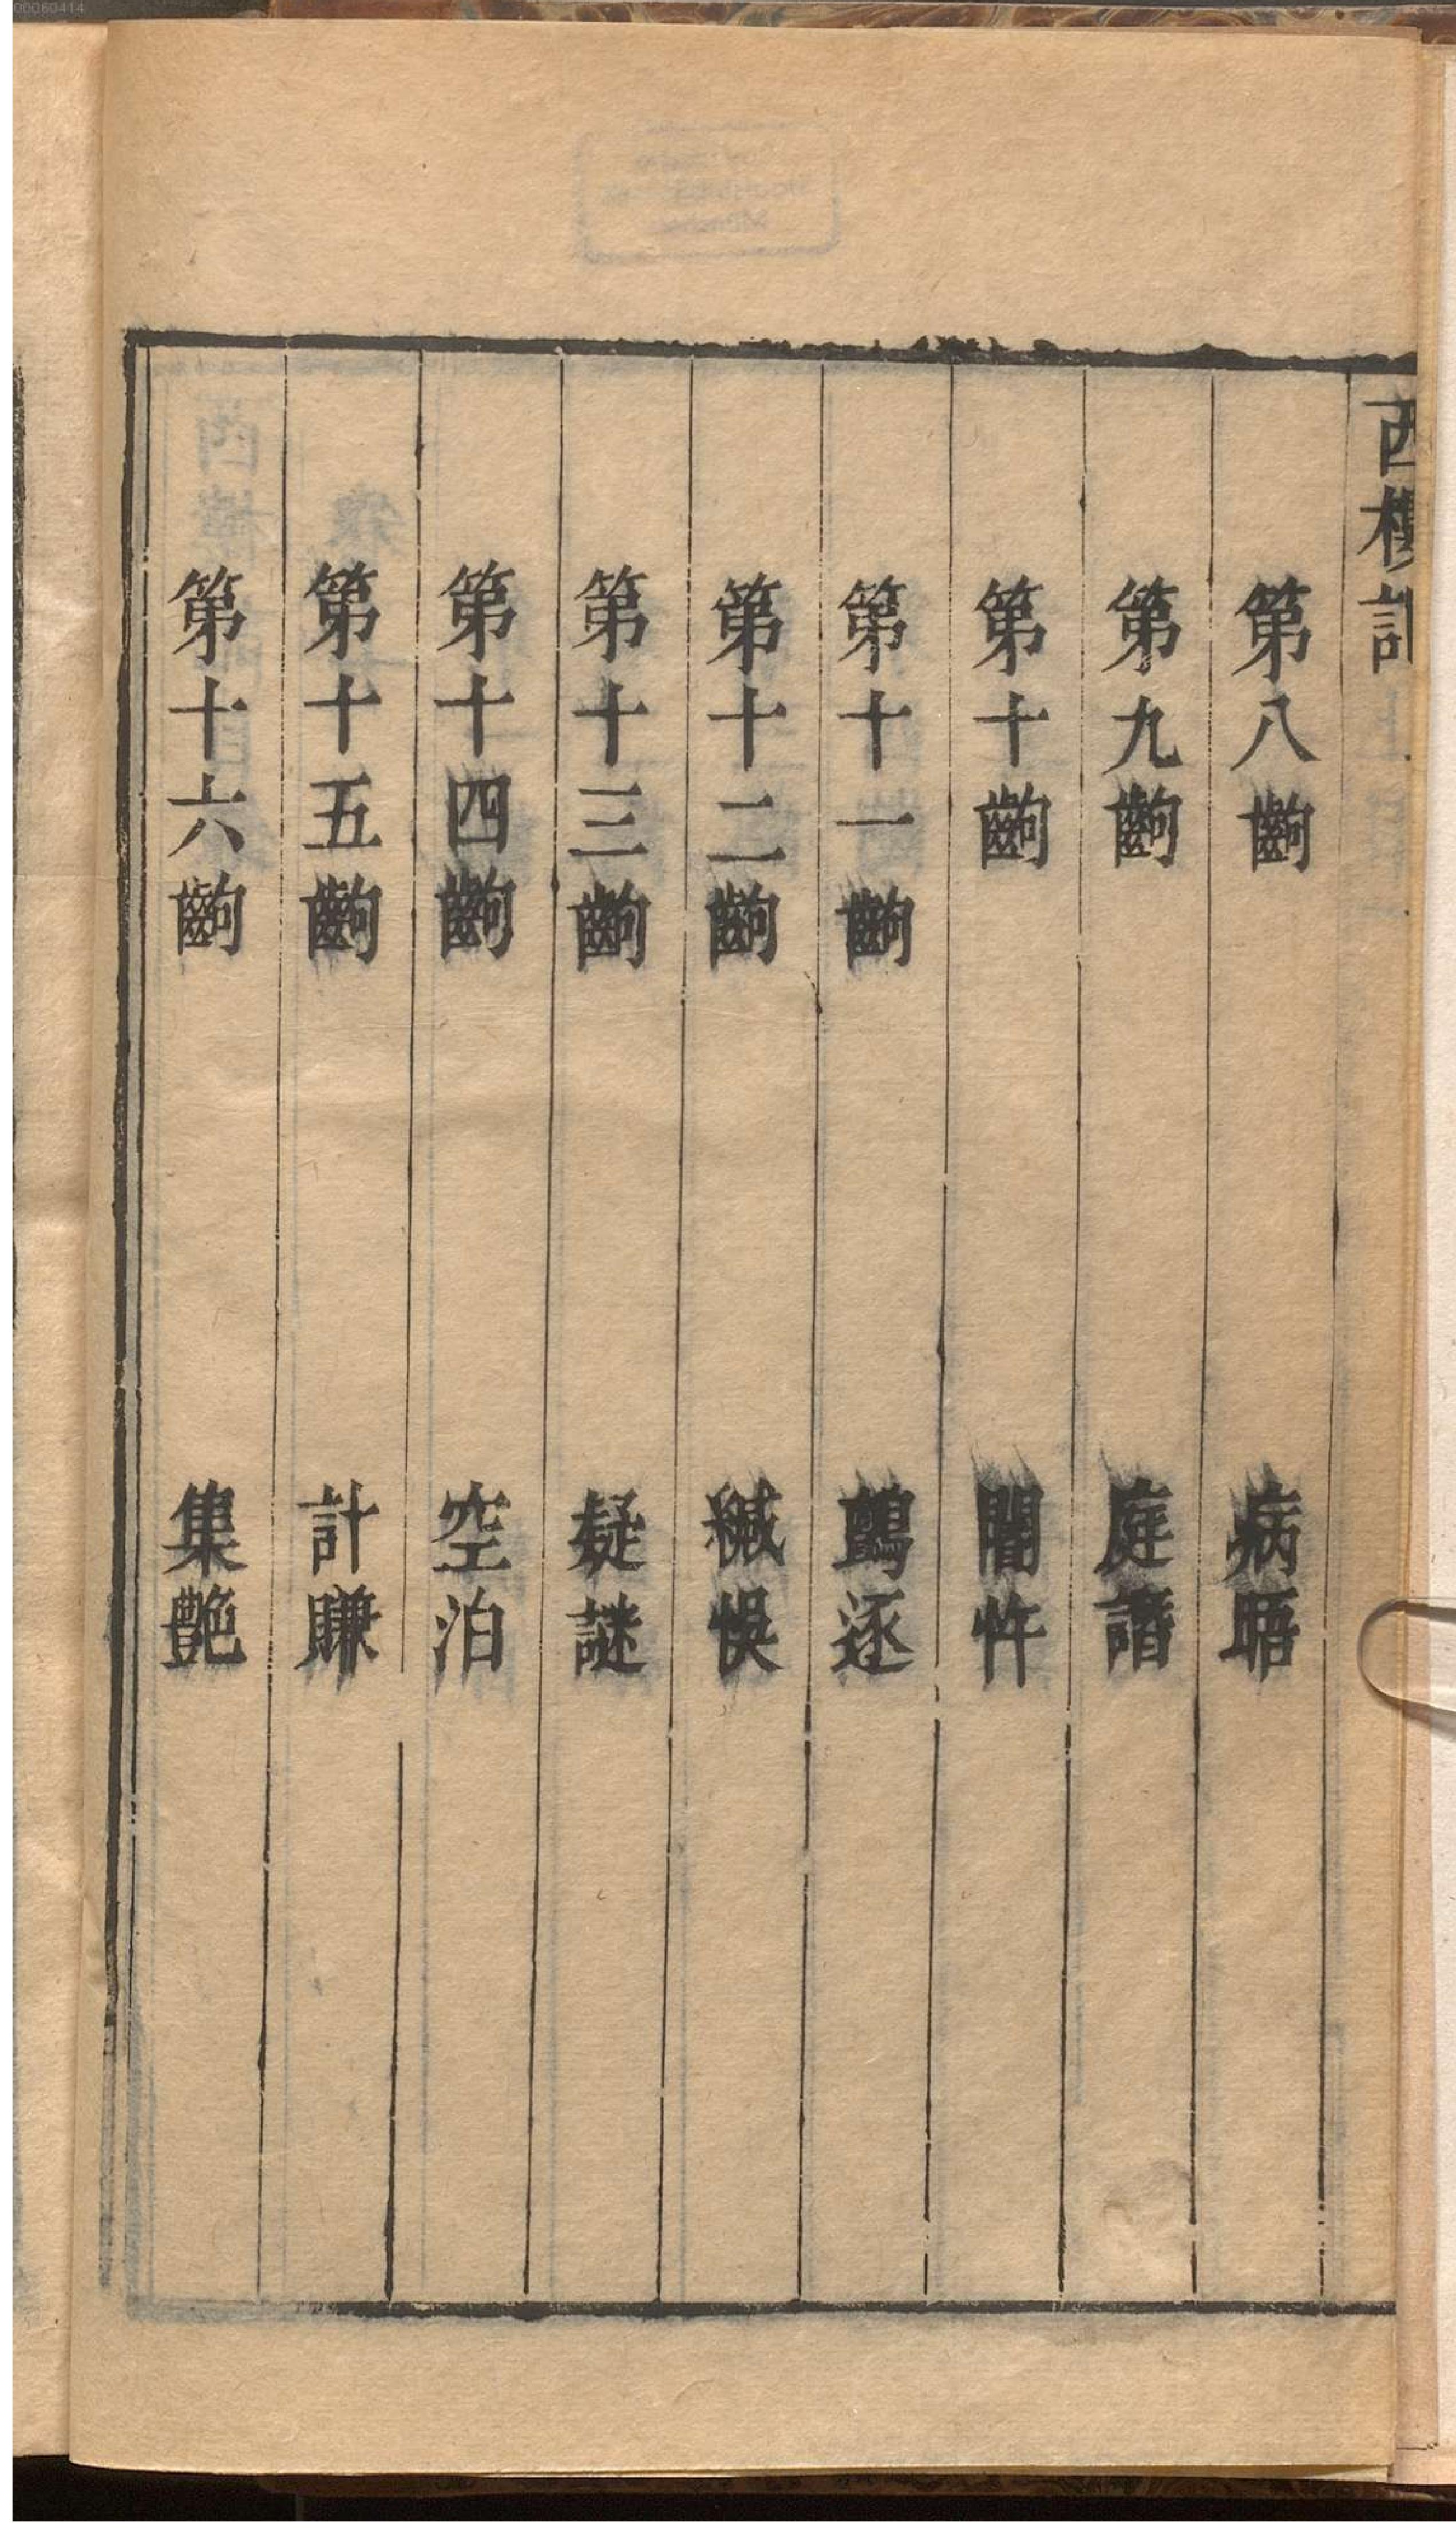 00060414
西樓記
第八齣 病晤
第九齣 庭譖
第十齣 闇忤
第十一齣 鸇逐
第十二齣 緘悞
第十三齣 疑謎
第十四齣 空泊
第十五齣 計賺
第十六齣 集艷